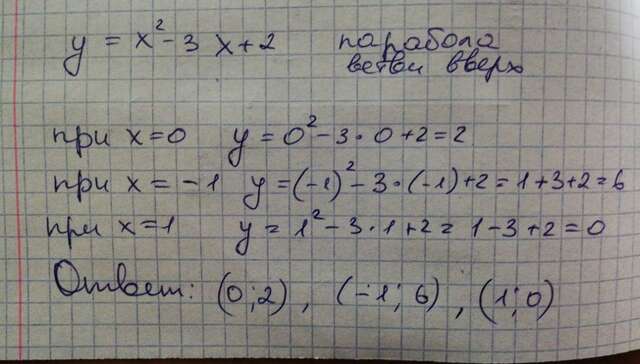 y = x² - 3x + 2 парабола
ветви вверх
при x = 0 y = 0² - 3 · 0 + 2 = 2
при x = -1 y = (-1)² - 3 · (-1) + 2 = 1 + 3 + 2 = 6
при x = 1 y = 1² - 3 · 1 + 2 = 1 - 3 + 2 = 0
Ответ: (0; 2), (-1; 6), (1; 0)